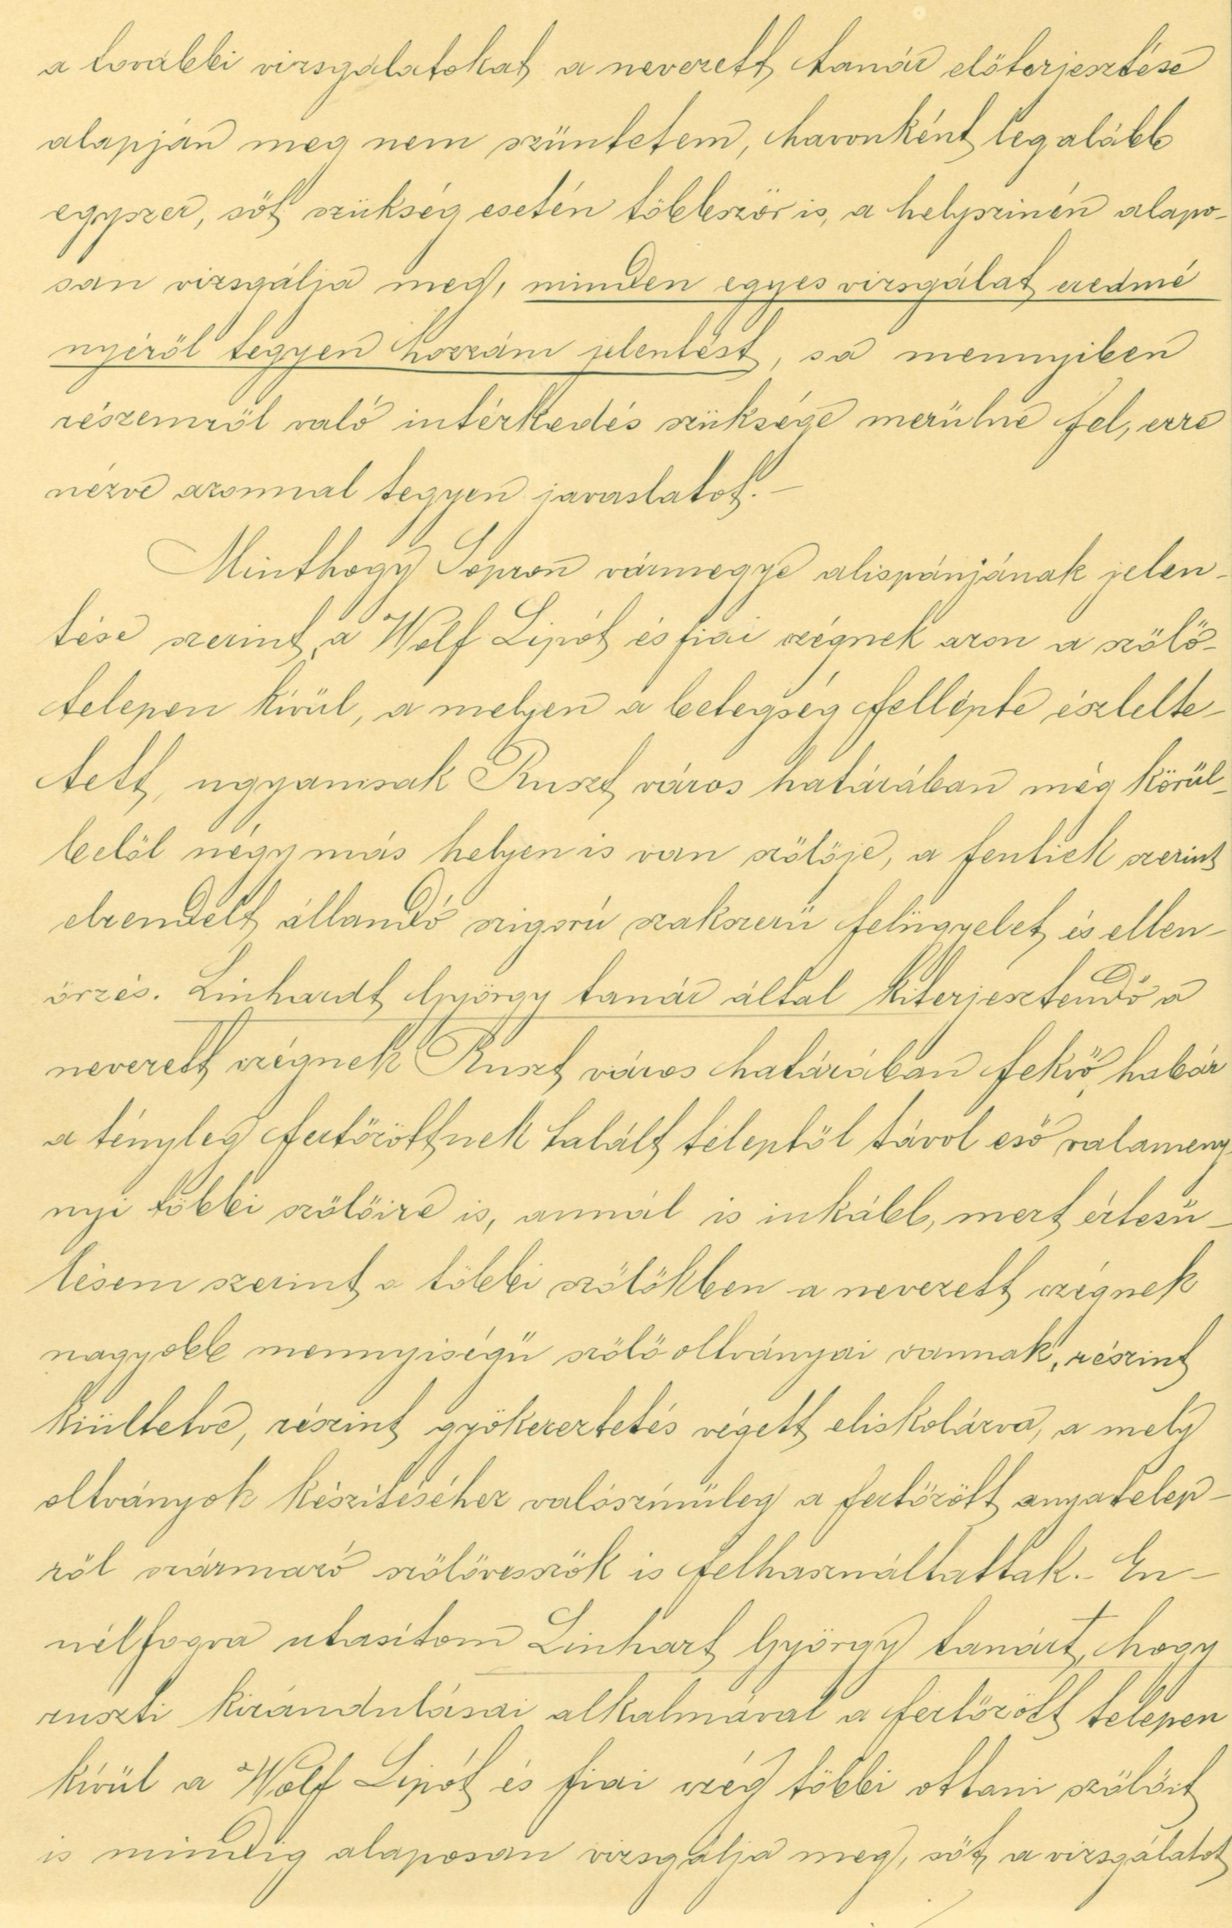 a további vizsgálatokat a nevezett tanár előterjesztése
alapján meg nem szüntetem, havonként legalább
egyszer, sőt szükség esetén többször is, a helyszinén alapo-
san vizsgálja meg, minden egyes vizsgálat eredmé
nyéről tegyen hozzám jelentést, s a mennyiben
részemről való intézkedés szüksége merülne fel, erre
nézve azonnal tegyen javaslatot.-
Minthogy Sopron vármegye alispánjának jelen-
tése szerint, a Wolf Lipót és fiai czégnek azon a szőlő-
telepen kívül, a melyen a betegség fellépte észlelte-
tett, ugyancsak Ruszt város határában még körül-
belől négy más helyen is van szőlője, a fentiek szerint
elrendelt állandó szigorú szakszerű felügyelet és ellen-
őrzés. Linhardt György tanár által kiterjesztendő a
nevezett czégnek Ruszt város határában fekvő, habár
a tényleg fertőzöttnek talált teleptől távol eső valameny-
nyi többi szőlőire is, annál is inkább, mert értesü-
lésem szerint a többi szőlőkben a nevezett czégnek
nagyobb mennyiségű szőlőoltványai vannak, részint
kiültetve, részint gyökereztetés végett eliskolázva, a mely
oltványok készítéséhez valószínűleg a fertőzött anyatelep-
ről származó szőlővesszők is felhasználtattak.- En-
nélfogva utasítom Linhart György tanárt, hogy
ruszti kirándulásai alkalmával a fertőzött telepen
kívül a Wolf Lipót és fiai czég többi ottani szőlőit
is mindig alaposan vizsgálja meg, sőt, a vizsgálatot